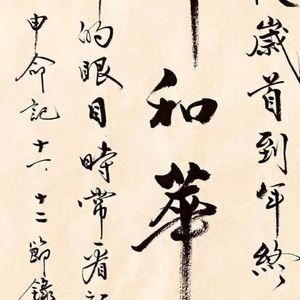 歲首到年終
和華
的眼目時常看
申命記十一.十二節錄